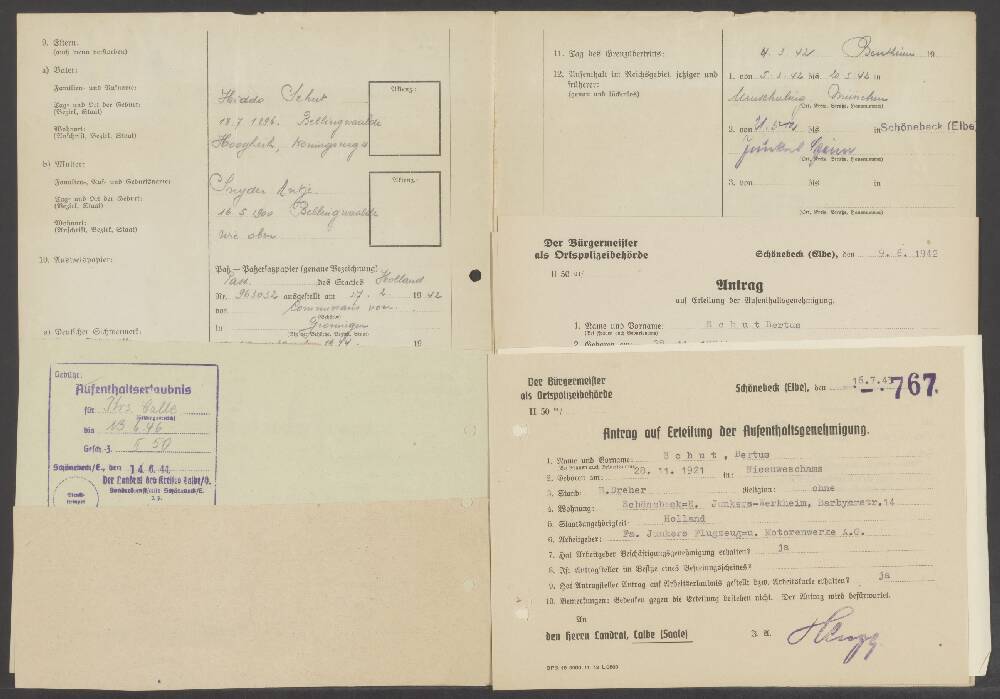 9. Eltern:
(auch wenn verstorben)
a) Vater:
Familien- und Rufname:
Tag und Ort der Geburt:
(Bezirk, Staat)
Wohnort:
(Anschrift, Bezirk, Staat)
b) Mutter:
Familien-, Ruf- und Geburtsname:
Tag und Ort der Geburt:
(Bezirk, Staat)
Wohnort:
(Anschrift, Bezirk, Staat)
10. Ausweispapier:
a) Deutscher Sichtvermerk:
Hiddo Schut
18.7.1896. Bellingwaalde
Aktenz.:
Snyder Antje
16.5.1900 Bellingwaalde
wie oben
Aktenz.:
Paß — Paßersatzpapier (genaue Bezeichnung)
Pass des Staates Holland
Nr. 963032 ausgestellt am 17. 2 1942
von Commissaris von
(Behörde)
in Groningen
19
11. Tag des Grenzübertritts: 4.3.42 Bentheim 19
12. Aufenthalt im Reichsgebiet jetziger und
früherer:
(genau und lückenlos)
1. vom 5.3.42 bis 20.5.42 in
München
(Ort, Kreis, Straße, Hausnummer)
2. vom 21.5.42 bis in Schönebeck (Elbe)
(Ort, Kreis, Straße, Hausnummer)
3. vom bis in
(Ort, Kreis, Straße, Hausnummer)
Der Bürgermeister
als Ortspolizeibehörde
II 50
Schönebeck (Elbe), den 9. 6. 1942
Antrag
auf Erteilung der Aufenthaltsgenehmigung.
1. Name und Vorname: Schut Bertus
2. Geboren am:
Gebühr:
Aufenthaltserlaubnis
für Krs. Calbe
bis 13.6.46
Gesch.-Z. I 50
Schönebeck/E., den 14.6.44
Der Landrat des Kreises Calbe/S.
Sonderdienststelle Schönebeck/E.
Der Bürgermeister
als Ortspolizeibehörde
II 50
Schönebeck (Elbe), den 15.7.43
767.
Antrag auf Erteilung der Aufenthaltsgenehmigung.
1. Name und Vorname: Schut, Bertus
2. Geboren am: 28. 11. 1921 in: Nieuweschans
3. Stand: M.Dreher Religion: ohne
4. Wohnung: Schönebeck-E. Junkers-Werkheim, Barbyerstr.14
5. Staatsangehörigkeit: Holland
6. Arbeitgeber: Fa. Junkers Flugzeug-u. Motorenwerke A.G.
7. Hat Arbeitgeber Beschäftigungsgenehmigung erhalten? ja
8. Ist Antragsteller im Besitze eines Befreiungsscheines?
9. Hat Antragsteller Antrag auf Arbeitserlaubnis gestellt bzw. Arbeitskarte erhalten? ja
10. Bemerkungen: Bedenken gegen die Erteilung bestehen nicht. Der Antrag wird befürwortet.
An
den Herrn Landrat, Calbe (Saale)
J. A.